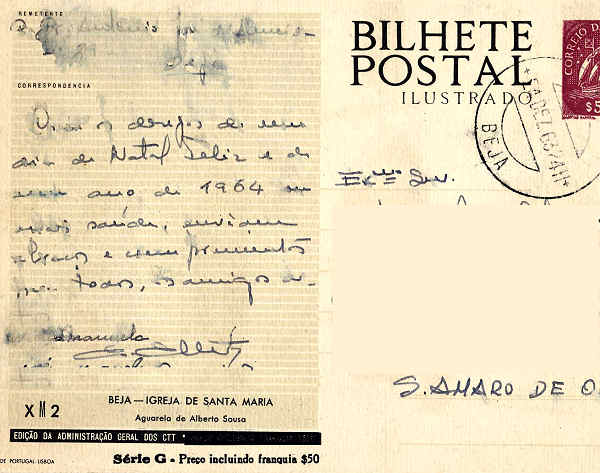 REMETENTE
Beja
CORRESPONDENCIA
os desejos de um
dia de Natal feliz e de
um ano de 1964 com
mais saúde, enviam
abraços e cumprimentos
para todos, os amigos
Manuela
X M 2
BEJA — IGREJA DE SANTA MARIA
Aguarela de Alberto Sousa
EDIÇÃO DA ADMINISTRAÇÃO GERAL DOS CTT
DE PORTUGAL-LISBOA
Série G - Preço incluindo franquia $50
BILHETE
POSTAL
ILUSTRADO
CORREIO
$5
DEZ.63
BEJA
Exmo Snr.
S. AMARO DE O